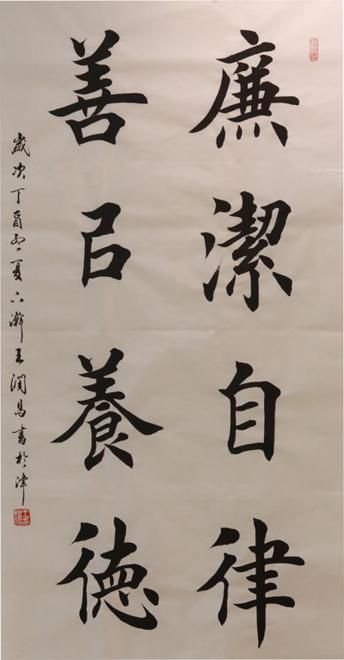 廉潔自律
善㠯養德
歲次丁酉夏六王潤書於津